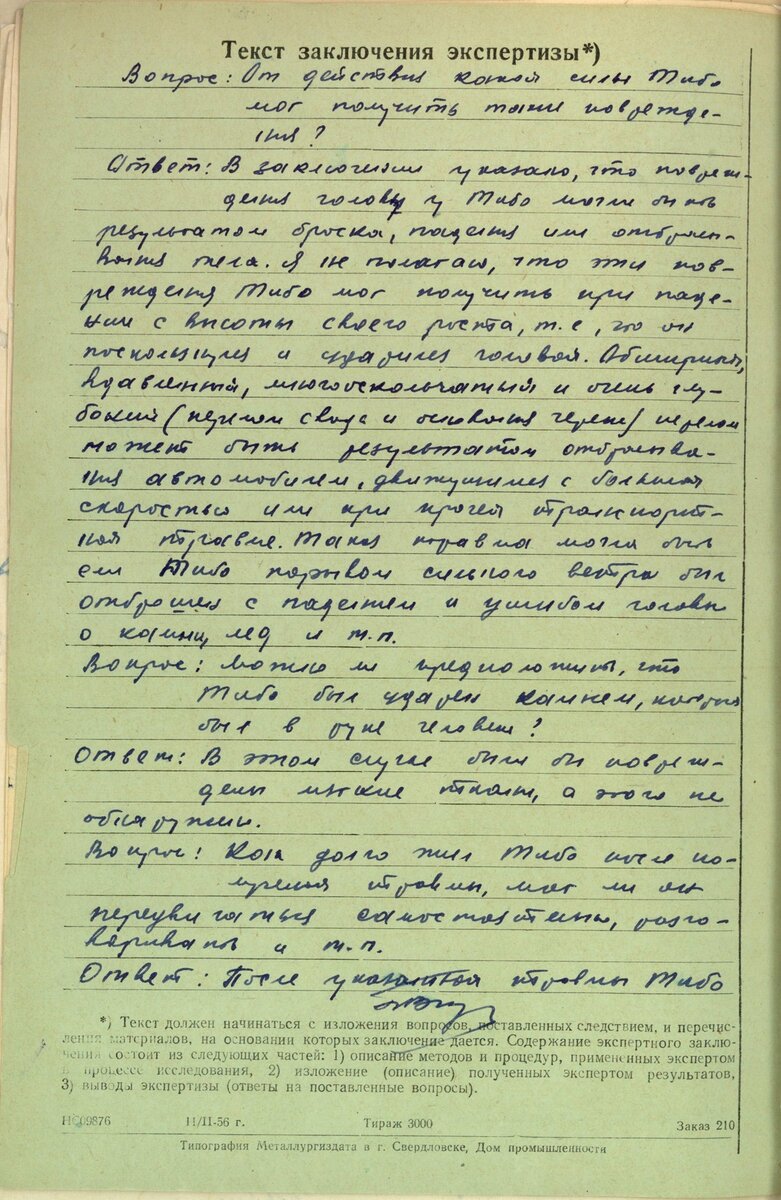 Текст заключения экспертизы*)
Вопрос: От действия какой силы Тибо
мог получить такие поврежде-
ния?
Ответ: В заключении указано, что повреж-
дения головы у Тибо могли быть
результатом броска, падения или отбрасы-
вания тела. Я не полагаю, что эти пов-
реждения Тибо мог получить при паде-
нии с высоты своего роста, т.е., что он
поскользнулся и ударился головой. Обширный,
вдавленный, многооскольчатый и очень глу-
бокий (перелом свода и основания черепа) перелом
может быть результатом отбрасыва-
ния автомобилем, движущимся с большой
скоростью или при прочей транспорт-
ной травме. Такая травма могла быть
если Тибо порывом сильного ветра был
отброшен с падением и ушибом головы
о камни, лед и т.п.
Вопрос: Можно ли предположить, что
Тибо был ударен камнем, который
был в руке человека?
Ответ: В этом случае были бы повреж-
дены мягкие ткани, а этого не
обнаружили.
Вопрос: Как долго жил Тибо после по-
лучения травмы, мог ли он
передвигаться самостоятельно, разго-
варивать и т.п.
Ответ: После указанной травмы Тибо
*) Текст должен начинаться с изложения вопросов, поставленных следствием, и перечис-
ления материалов, на основании которых заключение дается. Содержание экспертного заклю-
чения состоит из следующих частей: 1) описание методов и процедур, примененных экспертом
в процессе исследования, 2) изложение (описание) полученных экспертом результатов,
3) выводы экспертизы (ответы на поставленные вопросы).
НС09876 11/II-56 г. Тираж 3000 Заказ 210
Типография Металлургиздата в г. Свердловске, Дом промышленности